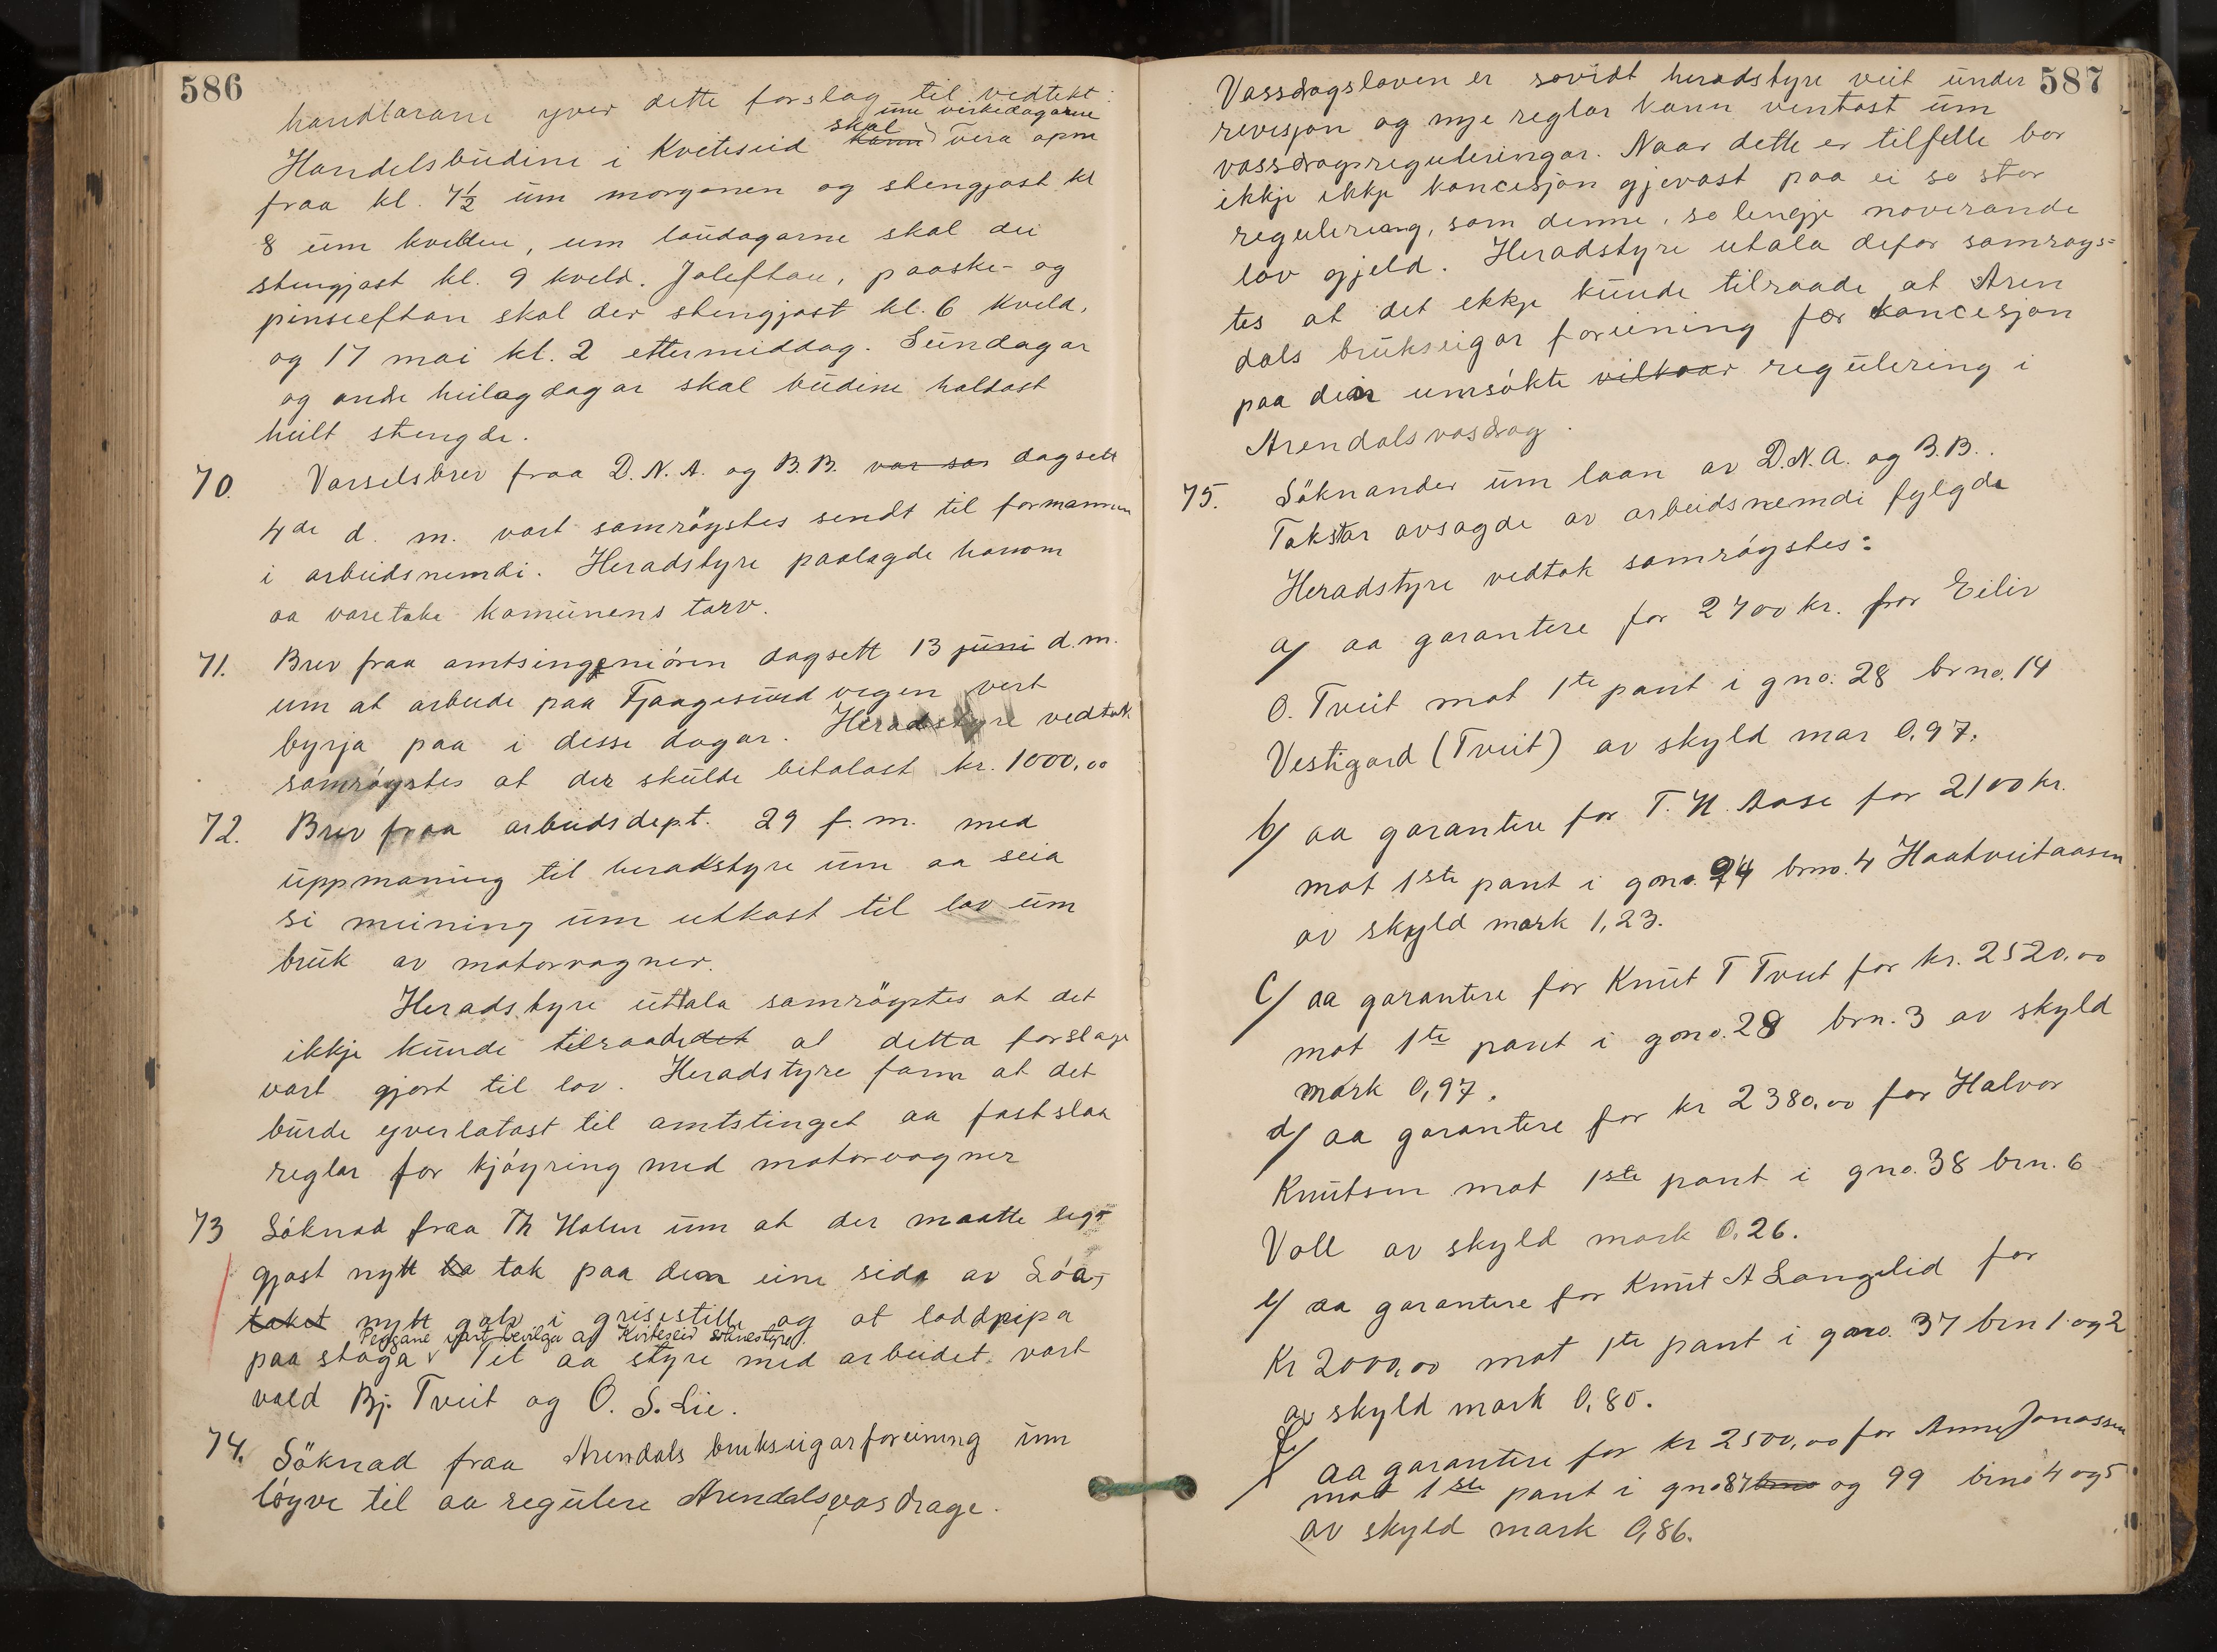 586
handlarane yver dette forslag til vedtekt:
um virkedagarne
skal
Handelsbudine i Kviteseid kann vera opne
fraa kl. 7½ um morgonen og stengjast kl
8 um kvelden, um laudagarne skal dei
stengjast kl. 9 kveld. Joleftan, paaske- og
pinseeftan skal der stengjast kl. 6 kveld,
og 17 mai kl. 2 ettermiddag. Sundagar
og andre heilagdagar skal budine haldast
heilt stengde.
70. Varselsbrev fraa D.N.A. og B.B. var sa dagsett
4de d. m. vart samrøystes sendt til formannen
i arbeidsnemdi. Heradstyre paalagde honom
aa varetake komunens tarv.
71. Brev fraa amtsingeniören dagsett 13 juni d.m.
um at arbeide paa Fjaagesund vegen vert
byrja paa i desse dagar. Heradstyre vedtok
samröystes at der skulde betalast kr. 1000,00
72. Brev fraa arbeidsdept. 29 f. m. med
uppmaning til heradstyre um aa seia
si meining um utkast til lov um
bruk av motorvagner.
Heradstyre uttala samröystes at det
ikkje kunde tilraade det at detta forslage
vart gjort til lov. Heradstyre fann at det
burde yverlatast til amtstinget aa fastslaa
reglar for kjöyring med motorvagner
73 Söknad fraa Th Holen um at der maatte leg-
gjast nytt ta tak paa den eine sida av Löa,
taket nytt golv i grisestille og at loddpipa
Pengane vart bevilga av Kviteseid soknestyre.
paa stoga. Til aa styre med arbeidet vart
vald Bj. Tveit og O. S. Lie.
74. Söknad fraa Arendals brukseigarforeining um
löyve til aa regulere Arendalsvasdrage.
587
Vassdragsloven er sovidt heradstyre veit under
revisjon og nye reglar kann ventast um
vassdragsreguleringar. Naar dette er tilfelle bør
ikkje ikkje koncesjon gjevast paa ei so stor
regulering, som denne, so lengje noverande
lov gjeld. Heradstyre utala defor samrøys-
tes at det ikkje kunde tilraade at Aren
dals brukseigar foreining fær koncesjon
paa dein umsökte vilkaar regulering i
Arendalsvasdrag.
75. Söknander um laan av D.N.A. og B.B..
Takstar avsagde av arbeidsnemdi fylgde
Heradstyre vedtok samröystes:
a/ aa garantere for 2700 kr. for Eiliv
O. Tveit mot 1ste pant i gno. 28 brno. 14
Vestigard (Tveit) av skyld mar 0,97.
b/ aa garantere for T. H. Aase for 2100 kr.
mot 1ste pant i gno. 94 brno. 4 Haatveitaasen
av skyld mark 1,23.
c/ aa garantere for Knut T Tveit for kr. 2520,00
mot 1ste pant i gno. 28 brn. 3 av skyld
mark 0,97.
d/ aa garantere for kr 2380,00 for Halvor
Knutsen mot 1ste pant i gno. 38 brn. 6
Voll av skyld mark 0,26.
e/ aa garantere for Knut A Langelid for
Kr 2000,00 mot 1ste pant i gno. 37 brn 1 og 2
av skyld mark 0,80.
f/ aa garantere for kr 2500,00 for Anne Jonassen
mot 1ste pant i gno 87 brno og 99 brno 4 og 5
av skyld mark 0,86.